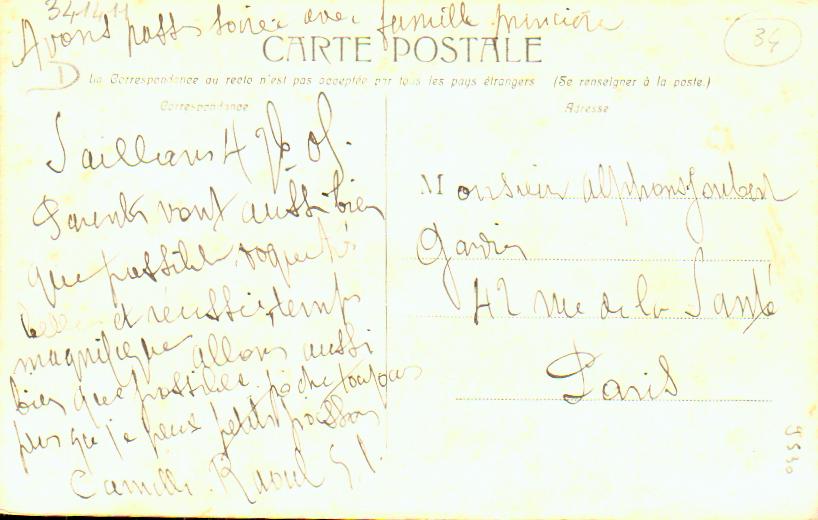 341411
Avons passé soirée avec famille princière
CARTE POSTALE
34
D
La Correspondance au recto n'est pas acceptée par tous les pays étrangers (Se renseigner à la poste.)
Correspondance
Adresse
Saillans 4 7b 05.
Parents vont aussi bien
que possible
et réussie temps
magnifique allons aussi
bien que possible. pêche toujours
plus que je peux petits poissons
Camille. Raoul
Monsieur Alphons Joubert
42 rue de la Santé
Paris